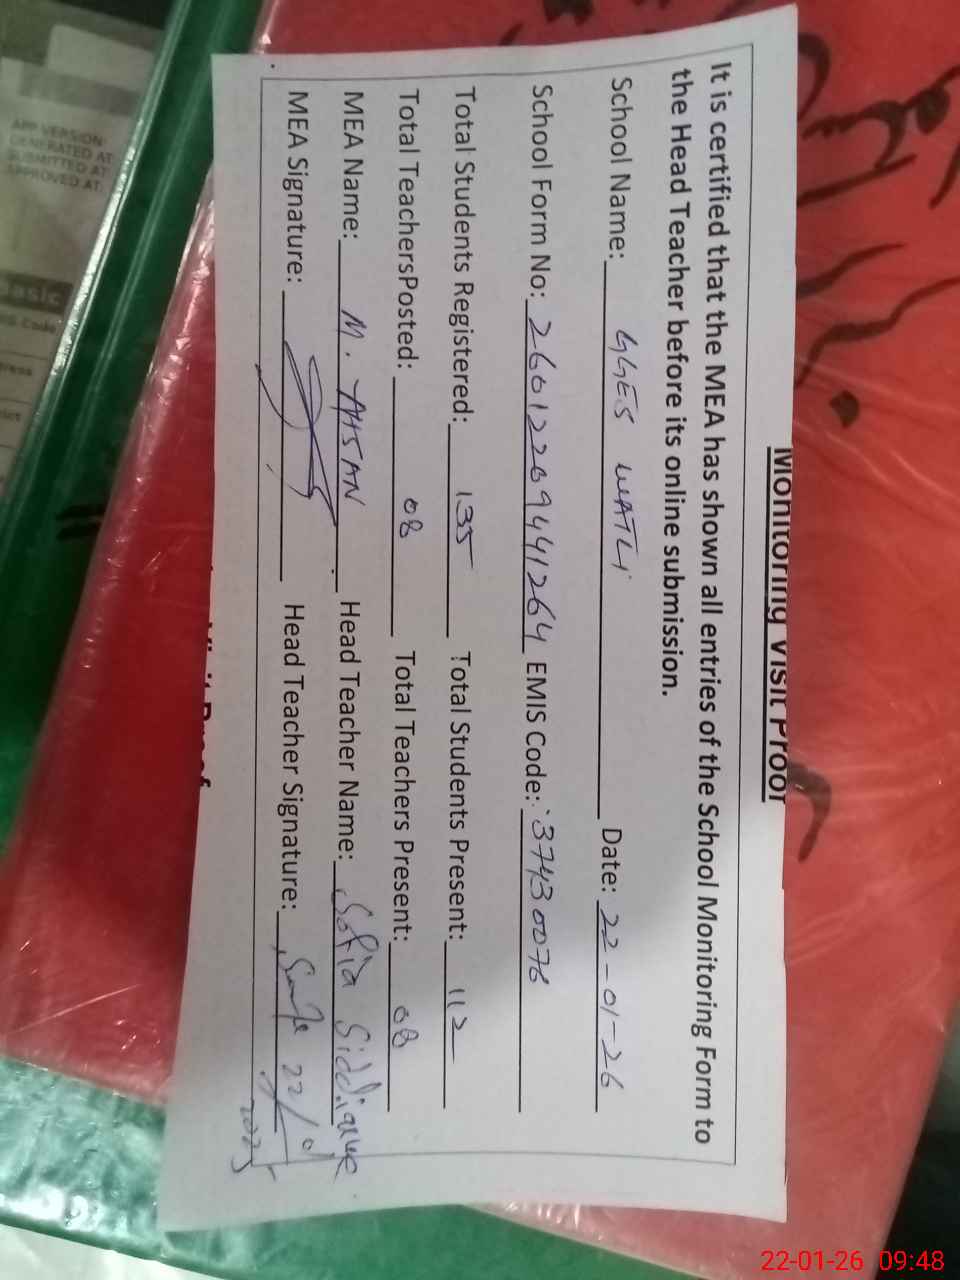 Monitoring Visit Proof
It is certified that the MEA has shown all entries of the School Monitoring Form to
the Head Teacher before its online submission.
School Name: GGES WATLI Date: 22-01-26
School Form No: 260122094441264 EMIS Code: 37430076
Total Students Registered: 135 Total Students Present: 112
Total TeachersPosted: 08 Total Teachers Present: 08
MEA Name: M. AHSAN Head Teacher Name: Sofia Siddique
MEA Signature: Head Teacher Signature: 22/01
APP VERSION:
GENERATED AT
SUBMITTED AT
APPROVED AT:
Basic
22-01-26 09:48